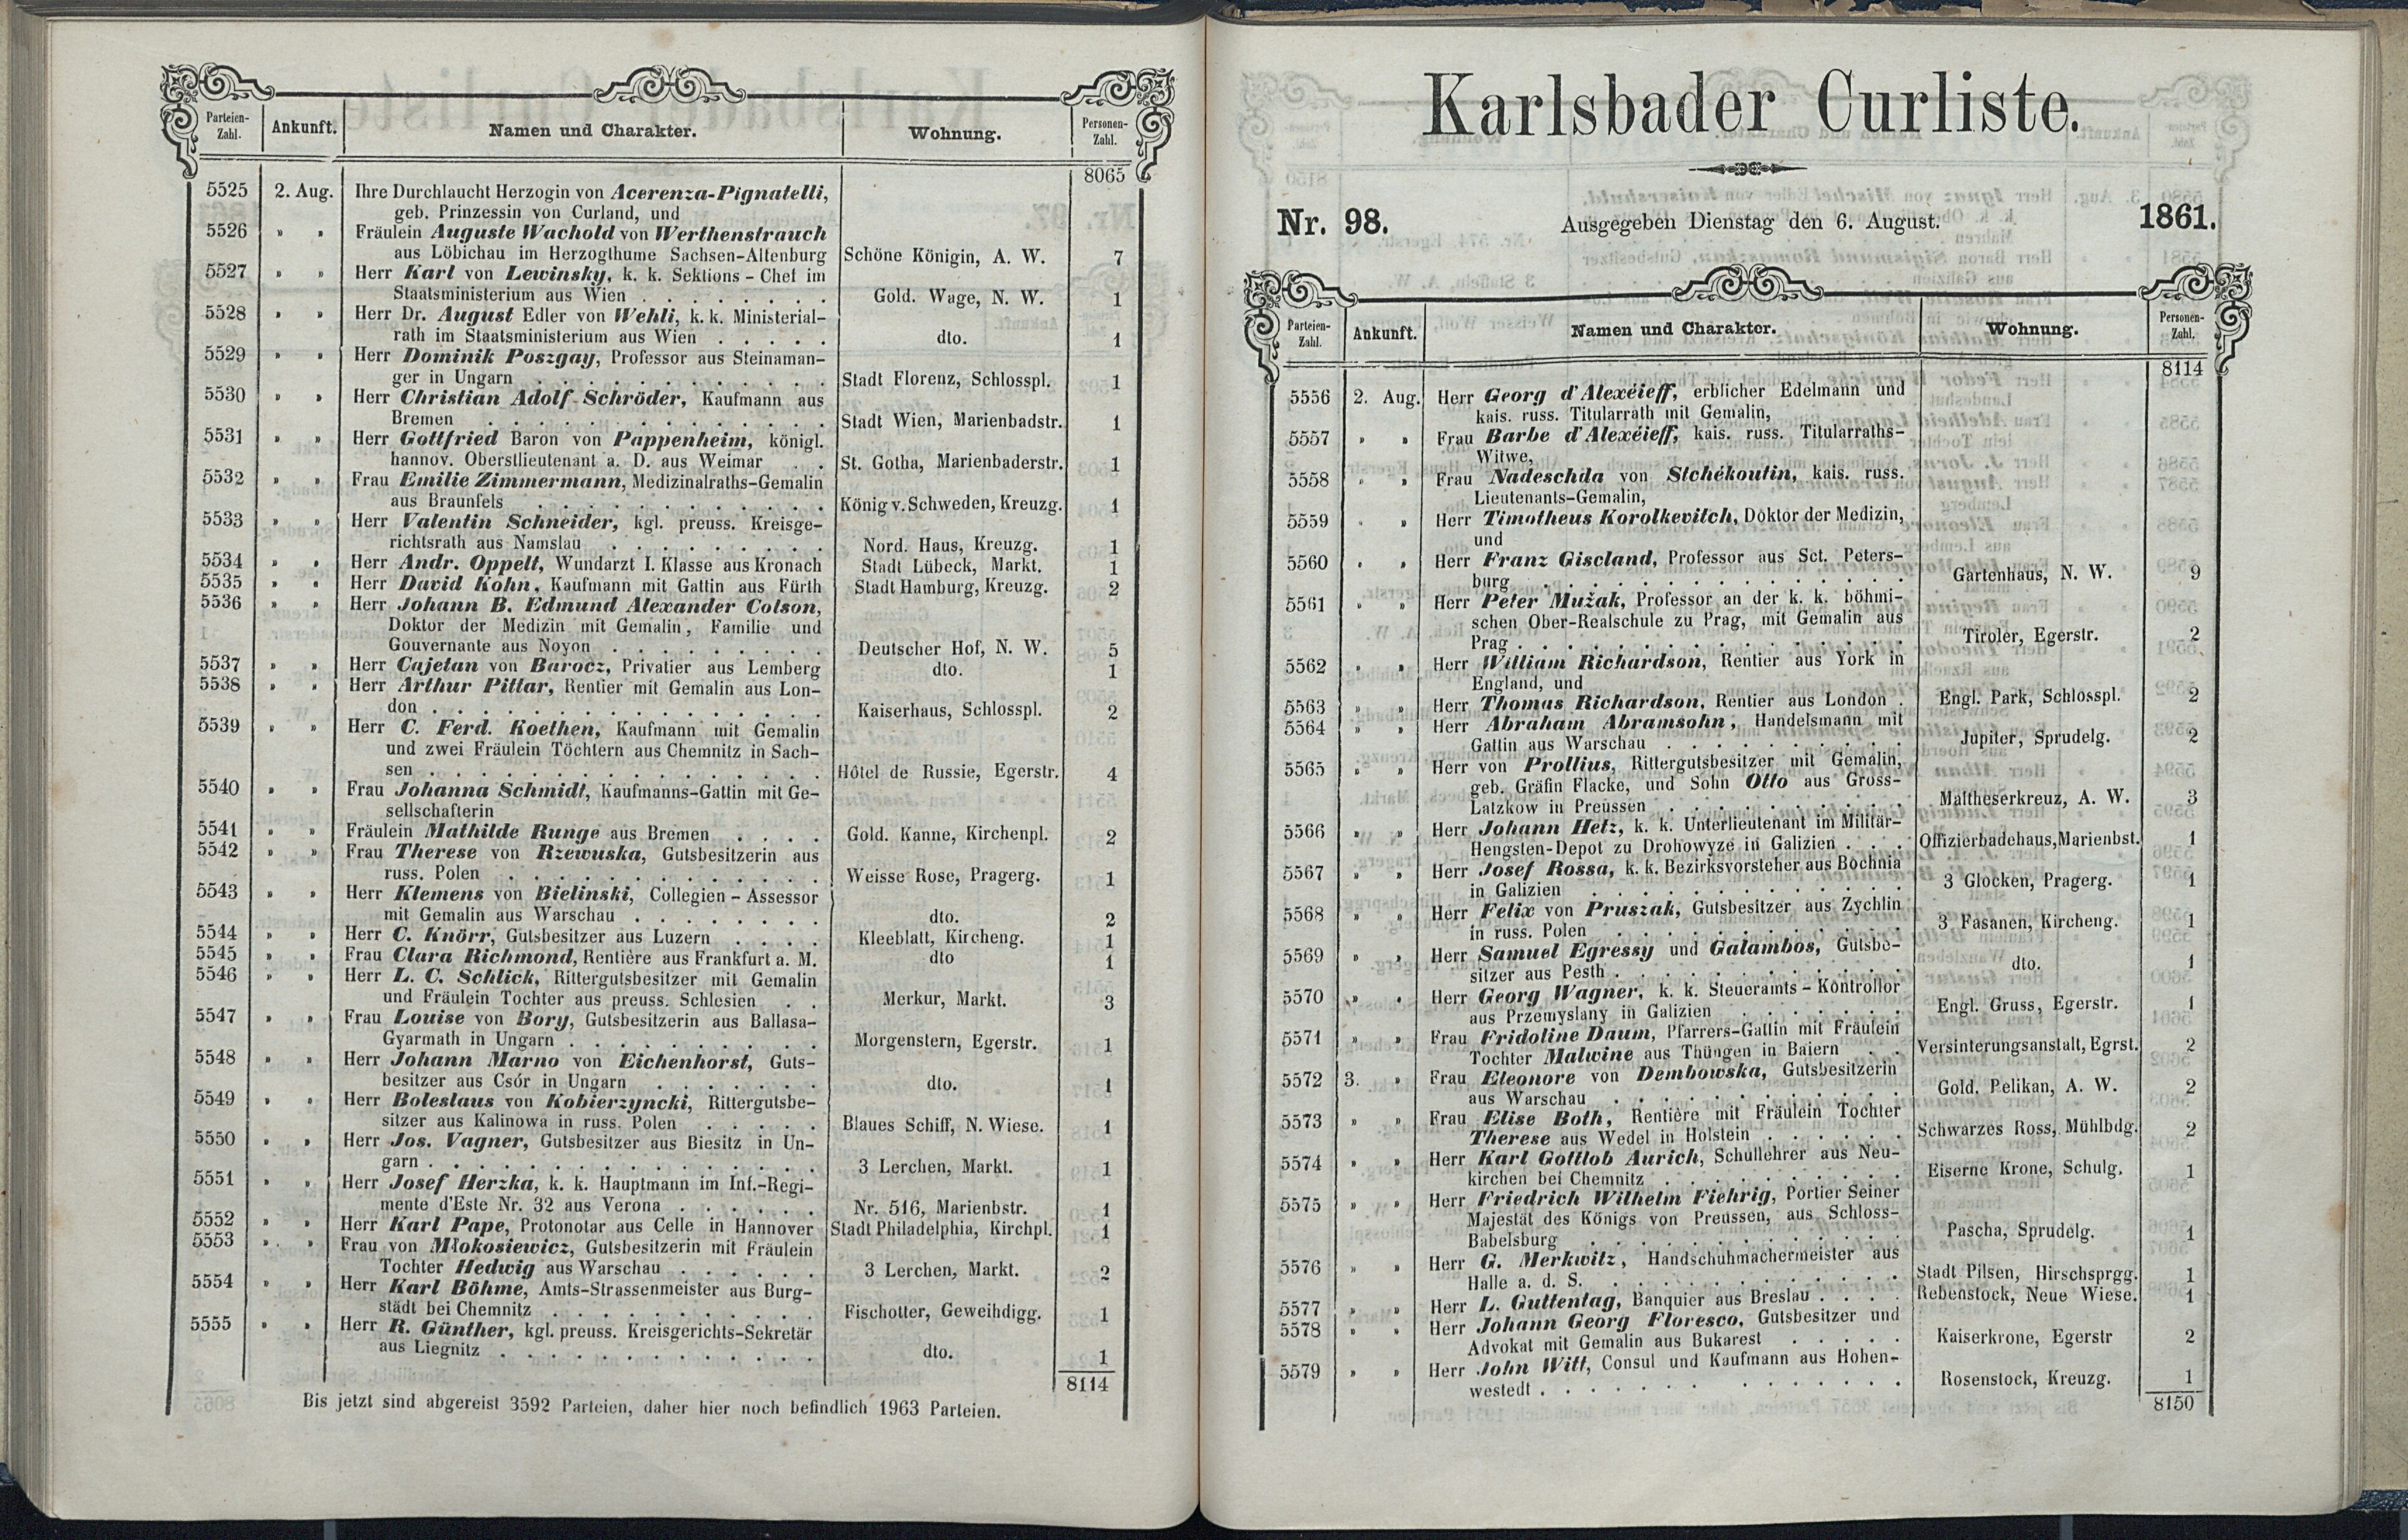 Parteien-Zahl. Ankunft. Namen und Charakter. Wohnung. Personen-Zahl.
8065
5525 2. Aug. Ihre Durchlaucht Herzogin von Acerenza-Pignatelli,
geb. Prinzessin von Curland, und
5526 » » Fräulein Auguste Wachold von Werthenstrauch
aus Löbichau im Herzogthume Sachsen-Altenburg Schöne Königin, A. W. 7
5527 » » Herr Karl von Lewinsky, k. k. Sektions-Chef im
Staatsministerium aus Wien . . . . . . . . Gold. Wage, N. W. 1
5528 » » Herr Dr. August Edler von Wehli, k. k. Ministerial-
rath im Staatsministerium aus Wien . . . . . dto. 1
5529 » » Herr Dominik Poszgay, Professor aus Steinaman-
ger in Ungarn . . . . . . . . . . . . Stadt Florenz, Schlosspl. 1
5530 » » Herr Christian Adolf Schröder, Kaufmann aus
Bremen . . . . . . . . . . . . . . Stadt Wien, Marienbadstr. 1
5531 » » Herr Gottfried Baron von Pappenheim, königl.
hannov. Oberstlieutenant a. D. aus Weimar . . St. Gotha, Marienbaderstr. 1
5532 » » Frau Emilie Zimmermann, Medizinalraths-Gemalin
aus Braunfels . . . . . . . . . . . . König v. Schweden, Kreuzg. 1
5533 » » Herr Valentin Schneider, kgl. preuss. Kreisge-
richtsrath aus Namslau . . . . . . . . . Nord. Haus, Kreuzg. 1
5534 » » Herr Andr. Oppelt, Wundarzt I. Klasse aus Kronach Stadt Lübeck, Markt. 1
5535 » » Herr David Kohn, Kaufmann mit Gattin aus Fürth Stadt Hamburg, Kreuzg. 2
5536 » » Herr Johann B. Edmund Alexander Colson,
Doktor der Medizin mit Gemalin, Familie und
Gouvernante aus Noyon . . . . . . . . . Deutscher Hof, N. W. 5
5537 » » Herr Cajetan von Barocz, Privatier aus Lemberg dto. 1
5538 » » Herr Arthur Pittar, Rentier mit Gemalin aus Lon-
don . . . . . . . . . . . . . . . . Kaiserhaus, Schlosspl. 2
5539 » » Herr C. Ferd. Koethen, Kaufmann mit Gemalin
und zwei Fräulein Töchtern aus Chemnitz in Sach-
sen . . . . . . . . . . . . . . . . Hôtel de Russie, Egerstr. 4
5540 » » Frau Johanna Schmidt, Kaufmanns-Gattin mit Ge-
sellschafterin
5541 » » Fräulein Mathilde Runge aus Bremen . . . . Gold. Kanne, Kirchenpl. 2
5542 » » Frau Therese von Rzewuska, Gutsbesitzerin aus
russ. Polen . . . . . . . . . . . . . Weisse Rose, Pragerg. 1
5543 » » Herr Klemens von Bielinski, Collegien-Assessor
mit Gemalin aus Warschau . . . . . . . . dto. 2
5544 » » Herr C. Knörr, Gutsbesitzer aus Luzern . . . . Kleeblatt, Kircheng. 1
5545 » » Frau Clara Richmond, Rentière aus Frankfurt a. M. dto 1
5546 » » Herr L. C. Schlick, Rittergutsbesitzer mit Gemalin
und Fräulein Tochter aus preuss. Schlesien . . Merkur, Markt. 3
5547 » » Frau Louise von Bory, Gutsbesitzerin aus Ballasa-
Gyarmath in Ungarn . . . . . . . . . . Morgenstern, Egerstr. 1
5548 » » Herr Johann Marno von Eichenhorst, Guts-
besitzer aus Csór in Ungarn . . . . . . . dto. 1
5549 » » Herr Boleslaus von Kobierzyncki, Rittergutsbe-
sitzer aus Kalinowa in russ. Polen . . . . . Blaues Schiff, N. Wiese. 1
5550 » » Herr Jos. Vagner, Gutsbesitzer aus Biesitz in Un-
garn . . . . . . . . . . . . . . . . 3 Lerchen, Markt. 1
5551 » » Herr Josef Herzka, k. k. Hauptmann im Inf.-Regi-
mente d'Este Nr. 32 aus Verona . . . . . . Nr. 516, Marienbstr. 1
5552 » » Herr Karl Pape, Protonotar aus Celle in Hannover Stadt Philadelphia, Kirchpl. 1
5553 » » Frau von Młokosiewicz, Gutsbesitzerin mit Fräulein
Tochter Hedwig aus Warschau . . . . . . 3 Lerchen, Markt. 2
5554 » » Herr Karl Böhme, Amts-Strassenmeister aus Burg-
städt bei Chemnitz . . . . . . . . . . . Fischotter, Geweihdigg. 1
5555 » » Herr R. Günther, kgl. preuss. Kreisgerichts-Sekretär
aus Liegnitz . . . . . . . . . . . . . dto. 1
8114
Bis jetzt sind abgereist 3592 Parteien, daher hier noch befindlich 1963 Parteien.
Karlsbader Curliste.
Nr. 98. Ausgegeben Dienstag den 6. August. 1861.
Parteien-Zahl. Ankunft. Namen und Charakter. Wohnung. Personen-Zahl.
8114
5556 2. Aug. Herr Georg d'Alexéieff, erblicher Edelmann und
kais. russ. Titularrath mit Gemalin,
5557 » » Frau Barbe d'Alexéieff, kais. russ. Titularraths-
Witwe,
5558 » » Frau Nadeschda von Stchékoutin, kais. russ.
Lieutenants-Gemalin,
5559 » » Herr Timotheus Korolkevitch, Doktor der Medizin,
und
5560 » » Herr Franz Giscland, Professor aus Sct. Peters-
burg . . . . . . . . . . . . . . . Gartenhaus, N. W. 9
5561 » » Herr Peter Mužak, Professor an der k. k. böhmi-
schen Ober-Realschule zu Prag, mit Gemalin aus
Prag . . . . . . . . . . . . . . . . Tiroler, Egerstr. 2
5562 » » Herr William Richardson, Rentier aus York in
England, und
5563 » » Herr Thomas Richardson, Rentier aus London . Engl. Park, Schlosspl. 2
5564 » » Herr Abraham Abramsohn, Handelsmann mit
Gattin aus Warschau . . . . . . . . . . Jupiter, Sprudelg. 2
5565 » » Herr von Prollius, Rittergutsbesitzer mit Gemalin,
geb. Gräfin Flacke, und Sohn Otto aus Gross-
Latzkow in Preussen . . . . . . . . . . Maltheserkreuz, A. W. 3
5566 » » Herr Johann Hetz, k. k. Unterlieutenant im Militär-
Hengsten-Depot zu Drohowyze in Galizien . . . Offizierbadehaus, Marienbst. 1
5567 » » Herr Josef Rossa, k. k. Bezirksvorsteher aus Bochnia
in Galizien . . . . . . . . . . . . . 3 Glocken, Pragerg. 1
5568 » » Herr Felix von Pruszak, Gutsbesitzer aus Zychlin
in russ. Polen . . . . . . . . . . . . 3 Fasanen, Kircheng. 1
5569 » » Herr Samuel Egressy und Galambos, Gutsbe-
sitzer aus Pesth . . . . . . . . . . . . dto. 1
5570 » » Herr Georg Wagner, k. k. Steueramts-Kontrollor
aus Przemyslany in Galizien . . . . . . . Engl. Gruss, Egerstr. 1
5571 » » Frau Fridoline Daum, Pfarrers-Gattin mit Fräulein
Tochter Malwine aus Thüngen in Baiern . . Versinterungsanstalt, Egrst. 2
5572 3. » Frau Eleonore von Dembowska, Gutsbesitzerin
aus Warschau . . . . . . . . . . . . Gold. Pelikan, A. W. 2
5573 » » Frau Elise Both, Rentière mit Fräulein Tochter
Therese aus Wedel in Holstein . . . . . . Schwarzes Ross, Mühlbdg. 2
5574 » » Herr Karl Gottlob Aurich, Schullehrer aus Neu-
kirchen bei Chemnitz . . . . . . . . . . Eiserne Krone, Schulg. 1
5575 » » Herr Friedrich Wilhelm Fiehrig, Portier Seiner
Majestät des Königs von Preussen, aus Schloss-
Babelsburg . . . . . . . . . . . . . Pascha, Sprudelg. 1
5576 » » Herr G. Merkwitz, Handschuhmachermeister aus
Halle a. d. S. . . . . . . . . . . . . Stadt Pilsen, Hirschsprgg. 1
5577 » » Herr L. Guttentag, Banquier aus Breslau . . . . Rebenstock, Neue Wiese. 1
5578 » » Herr Johann Georg Floresco, Gutsbesitzer und
Advokat mit Gemalin aus Bukarest . . . . . Kaiserkrone, Egerstr 2
5579 » » Herr John Witt, Consul und Kaufmann aus Hohen-
westedt . . . . . . . . . . . . . . Rosenstock, Kreuzg. 1
8150